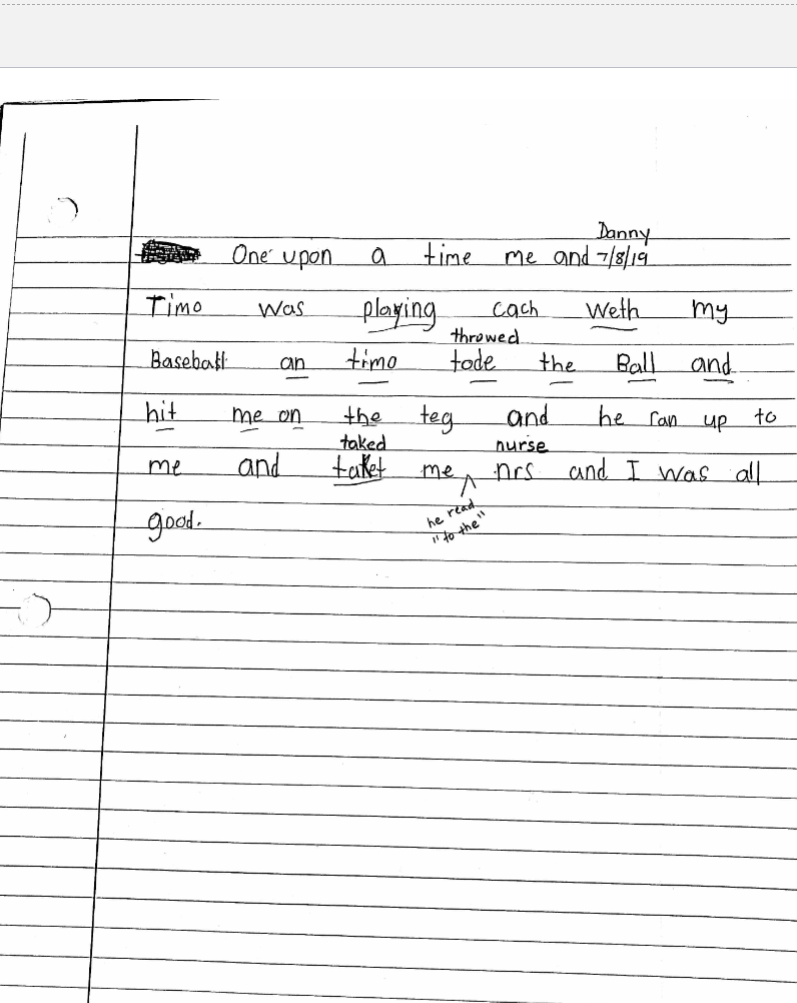 Danny
One upon a time me and 7/8/19
Timo was playing cach weth my
throwed
Baseball an timo tode the Ball and
hit me on the teg and he ran up to
taked nurse
me and taket me ^ nrs and I was all
he read
good.
"to the"